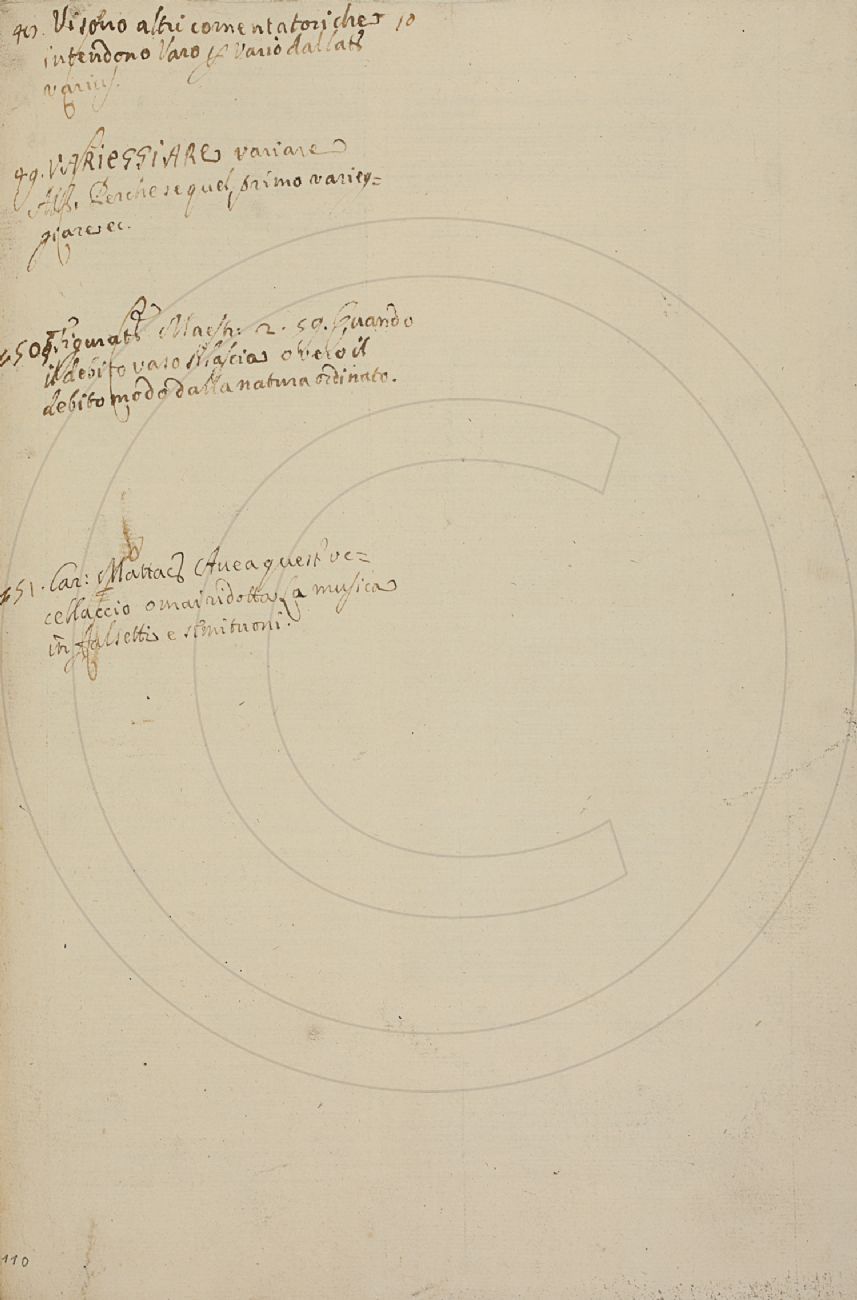 48. Vi sono altri comentatori che 10
intendono Varo p Vario dal lat:
varius.
49. VARIEGGIARE variare
All. Perche se quel primo varieg=
giare ec.
50. Figurat: Maestr: 2. 59. Quando
il debito vaso si lascia overo il
debito modo dalla natura ordinato.
51. Car: Mattac: Avea quest' uc=
cellaccio omai ridotta la musica
in falsetti e semituoni.
110